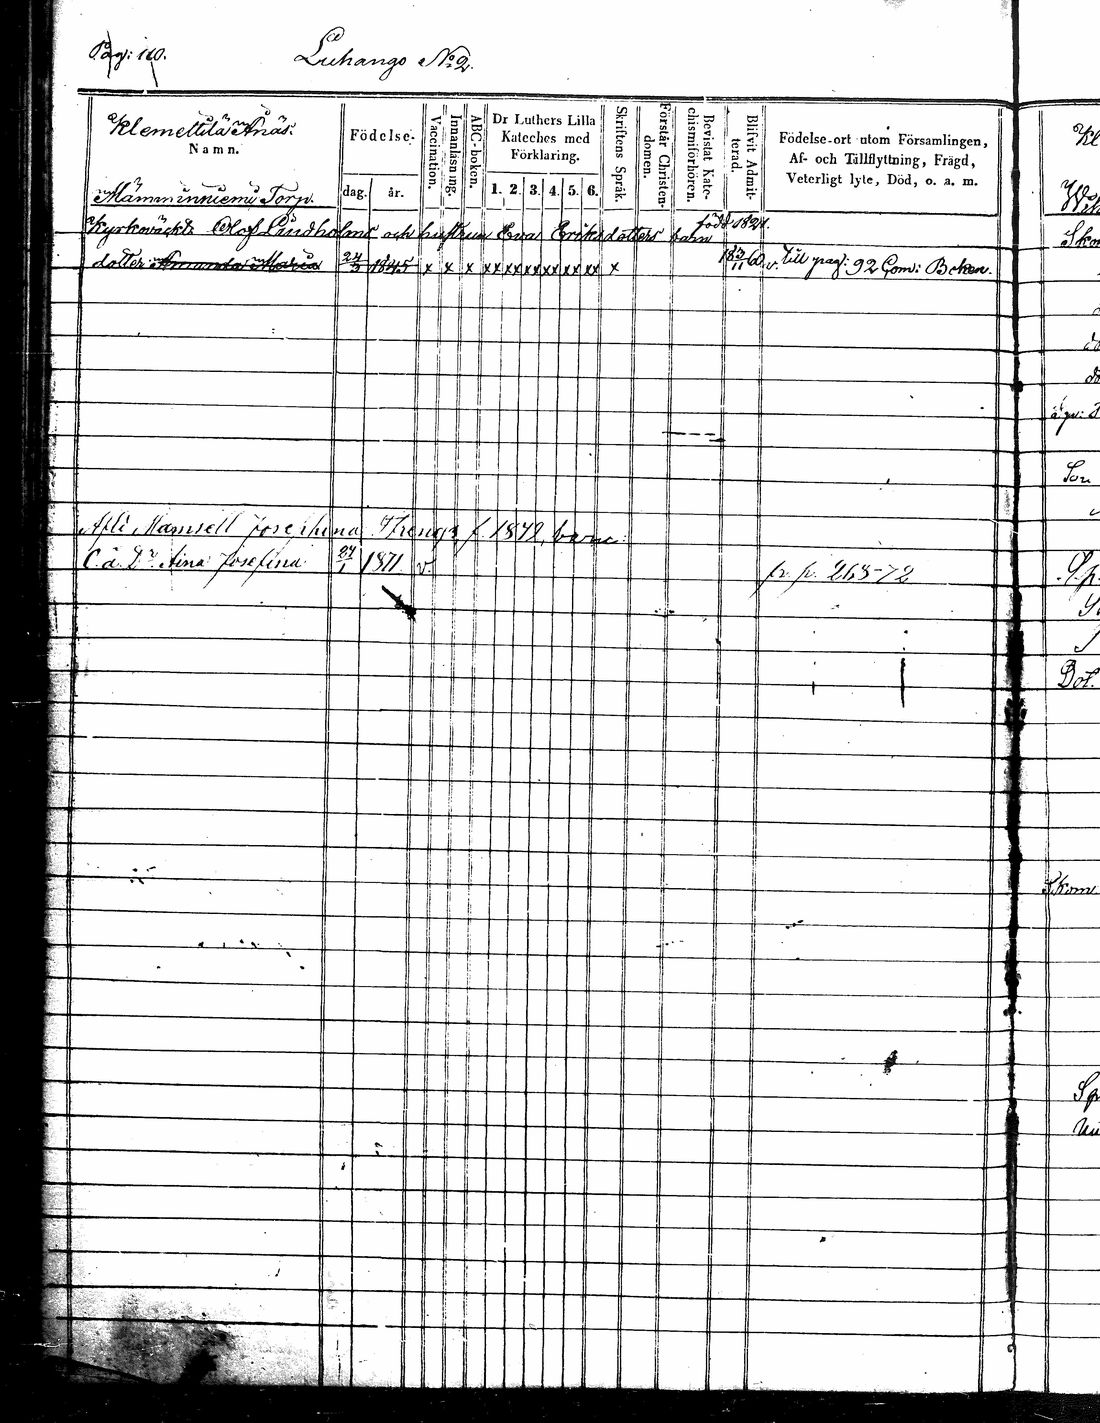 Pag: 110.
Luhango No 2.
Klemettilä Änäs.
Namn.
Födelse-
dag.
år.
Vaccination.
Innanläsning.
ABC-boken.
Dr Luthers Lilla
Kateches med
Förklaring.
1. 2. 3. 4. 5. 6.
Skriftens Språk.
Förstår Christen-
domen.
Bevistat Kate-
chismiförhören.
Blifvit Admit-
terad.
Födelse-ort utom Församlingen,
Af- och Tillflyttning, Frägd,
Veterligt lyte, Död, o. a. m.
Mämminniemi Torp.
Kyrkoväckt: Olof Lindholms och hustrun Eva Eriksdotters barn född 1821.
dotter Amanda Maria 24/3 1845 x x x xx xx xx xx xx xx x 18 3/11 60 v. till pag: 92 Com: Boken.
Afl: Mamsell Josephina Thengs f. 1842, barn:
O. ä. Dr Aina Josefina 24/1 1871 v. fr. p. 268-72
Skom
Son
Dot.
Skom.